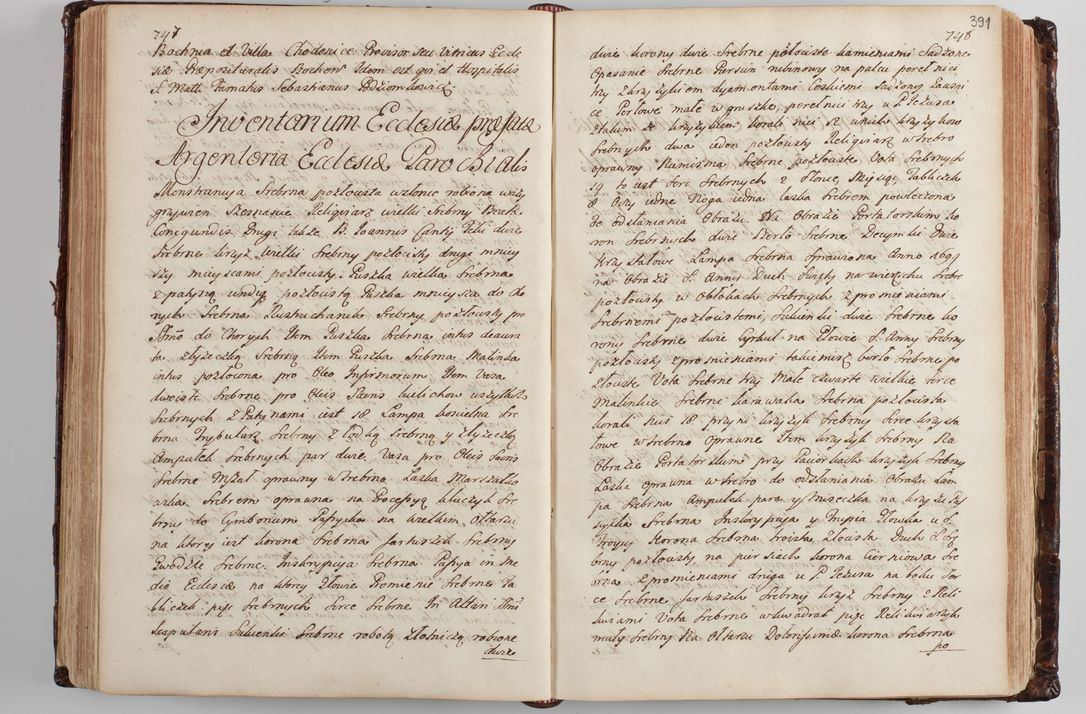 747
Bochnia et Villa Chodenice Provisor seu Vitricus Eccle
siæ Præposituralis Bochn Idem est qui et Hospitalis
S. Matt Famatus Sebastianus
Inventarium Ecclesiæ præfatæ
Argentaria Ecclesiæ Parochialis
Monstrancya Srebrna pozłocista robiona
wielki Srebrny Beatæ
Cunegundis Drugi także B. Joannis Cantij dwie
Srebrne krzyż wielki Srebrny pozłocisty drugi mnieyszy
mieyscami pozłocisty. Puszka wielka Srebrna
z patyną pozłocistą Puszka mnieysza do cho
rych Srebrna Srebrny pozłocisty pro
do Chorych Item Puszka Srebrna intus deaura
ta z łyżeczką Srebrną Item Puszka Srebrna Malinka
intus pozłocona pro Oleo Infirmorum Item Vasa
dwoiste Srebrne pro Oleis Sacris kielichow wszytkich
Srebrnych z Patynami iest 18 Lampa kościelna Sre
brna Trybularz Srebrny z Łodką Srebrną y łyżeczką
Ampułek srebrnych par dwie, Vasa pro Oleis Sacris
Srebrne Mszał oprawny w Srebro Laska Marszałko
wska Srebrem oprawna na Processyą kluczyk Sre
brny do Cymborium na wielkim Ołtarzu
na ktorey iest korona Srebrna Srebrny
Gwoździe Srebrne, Inskrypcya Srebrna in Me
dio Ecclesiæ na ktorey Głowie Promienie Srebrne Ta
bliczek pięć Srebrnych Serce Srebrne In Altari
Scapularis Sukienki Srebrne robotą złotniczą robione
dwie
391
748
dwie korony dwie Srebrne pozłociste kamieniami Sadzone
Opasanie Srebrne Pierścień rubinowy na palcu pereł nici
trzy z krzyżykiem dyamentami Czeskiemi Sadzony
Perłowe małe w gruszkę, pereł nici trzy u P. Jezusa
złotym ze krzyżykiem korali nici 12 u nich krzyżykow
srebrnych dwa ieden pozłocisty Religiarz w Srebro
oprawny Numizma Srebrne pozłociste Vota Srebrnych
to iest Serc Srebrnych 2 Słońce, Miesiąc, Tabliczek
8 Oczy iedne Noga iedna laska Srebrem powleczona
do odsłaniania Obrazu. Na Obrazie Portatorskim ko
ron Srebrnych dwie Berło Srebrne Decymki Dwie
krzyształowe Lampa Srebrna sprawiona Anno 1694
na Obrazie S. Anny Duch Święty na wierzchu Srebr
pozłocisty w Obłokach Srebrnych z promieniami
Srebrnemi pozłocistemi, Sukienki dwie Srebrne ko
rony Srebrne dwie Cyrkuł na Głowie S. Anny Srebrny
pozłocisty z promieniami takiemisz berło Srebrne po
złociste Vota Srebrne trzy Małe czwarte wielkie Serce
malinkie Srebrne karawaka Srebrna pozłocista
korali Nici 18. przy ni krzyżyk Srebrny Serce kryszta
łowe w Srebro Oprawne Item krzyżyk Srebrny Na
Obrazie Portatorskim przy Paciorkach krzyżyk Srebrny
Laska Oprawna w Srebro do odsłaniania Obrazu Lam
pa Srebrna Ampułek para y miseczka na krzyżu
Srebrna Inskrypcya y Głowka u S.
Troycy Korona Srebrna troista złocista Duch S. Sre
brny pozłocisty na piersiach korona Cierniowa Sre
brna z promieniami druga u P. Jezusa na boku Ser
ce Srebrne Srebrny krzyż Srebrny z Reli
kwiami Vota Srebrne w kwadrat pięć
mały Srebrny Na Ołtarzu Dolorissimæ korona Srebrna
po